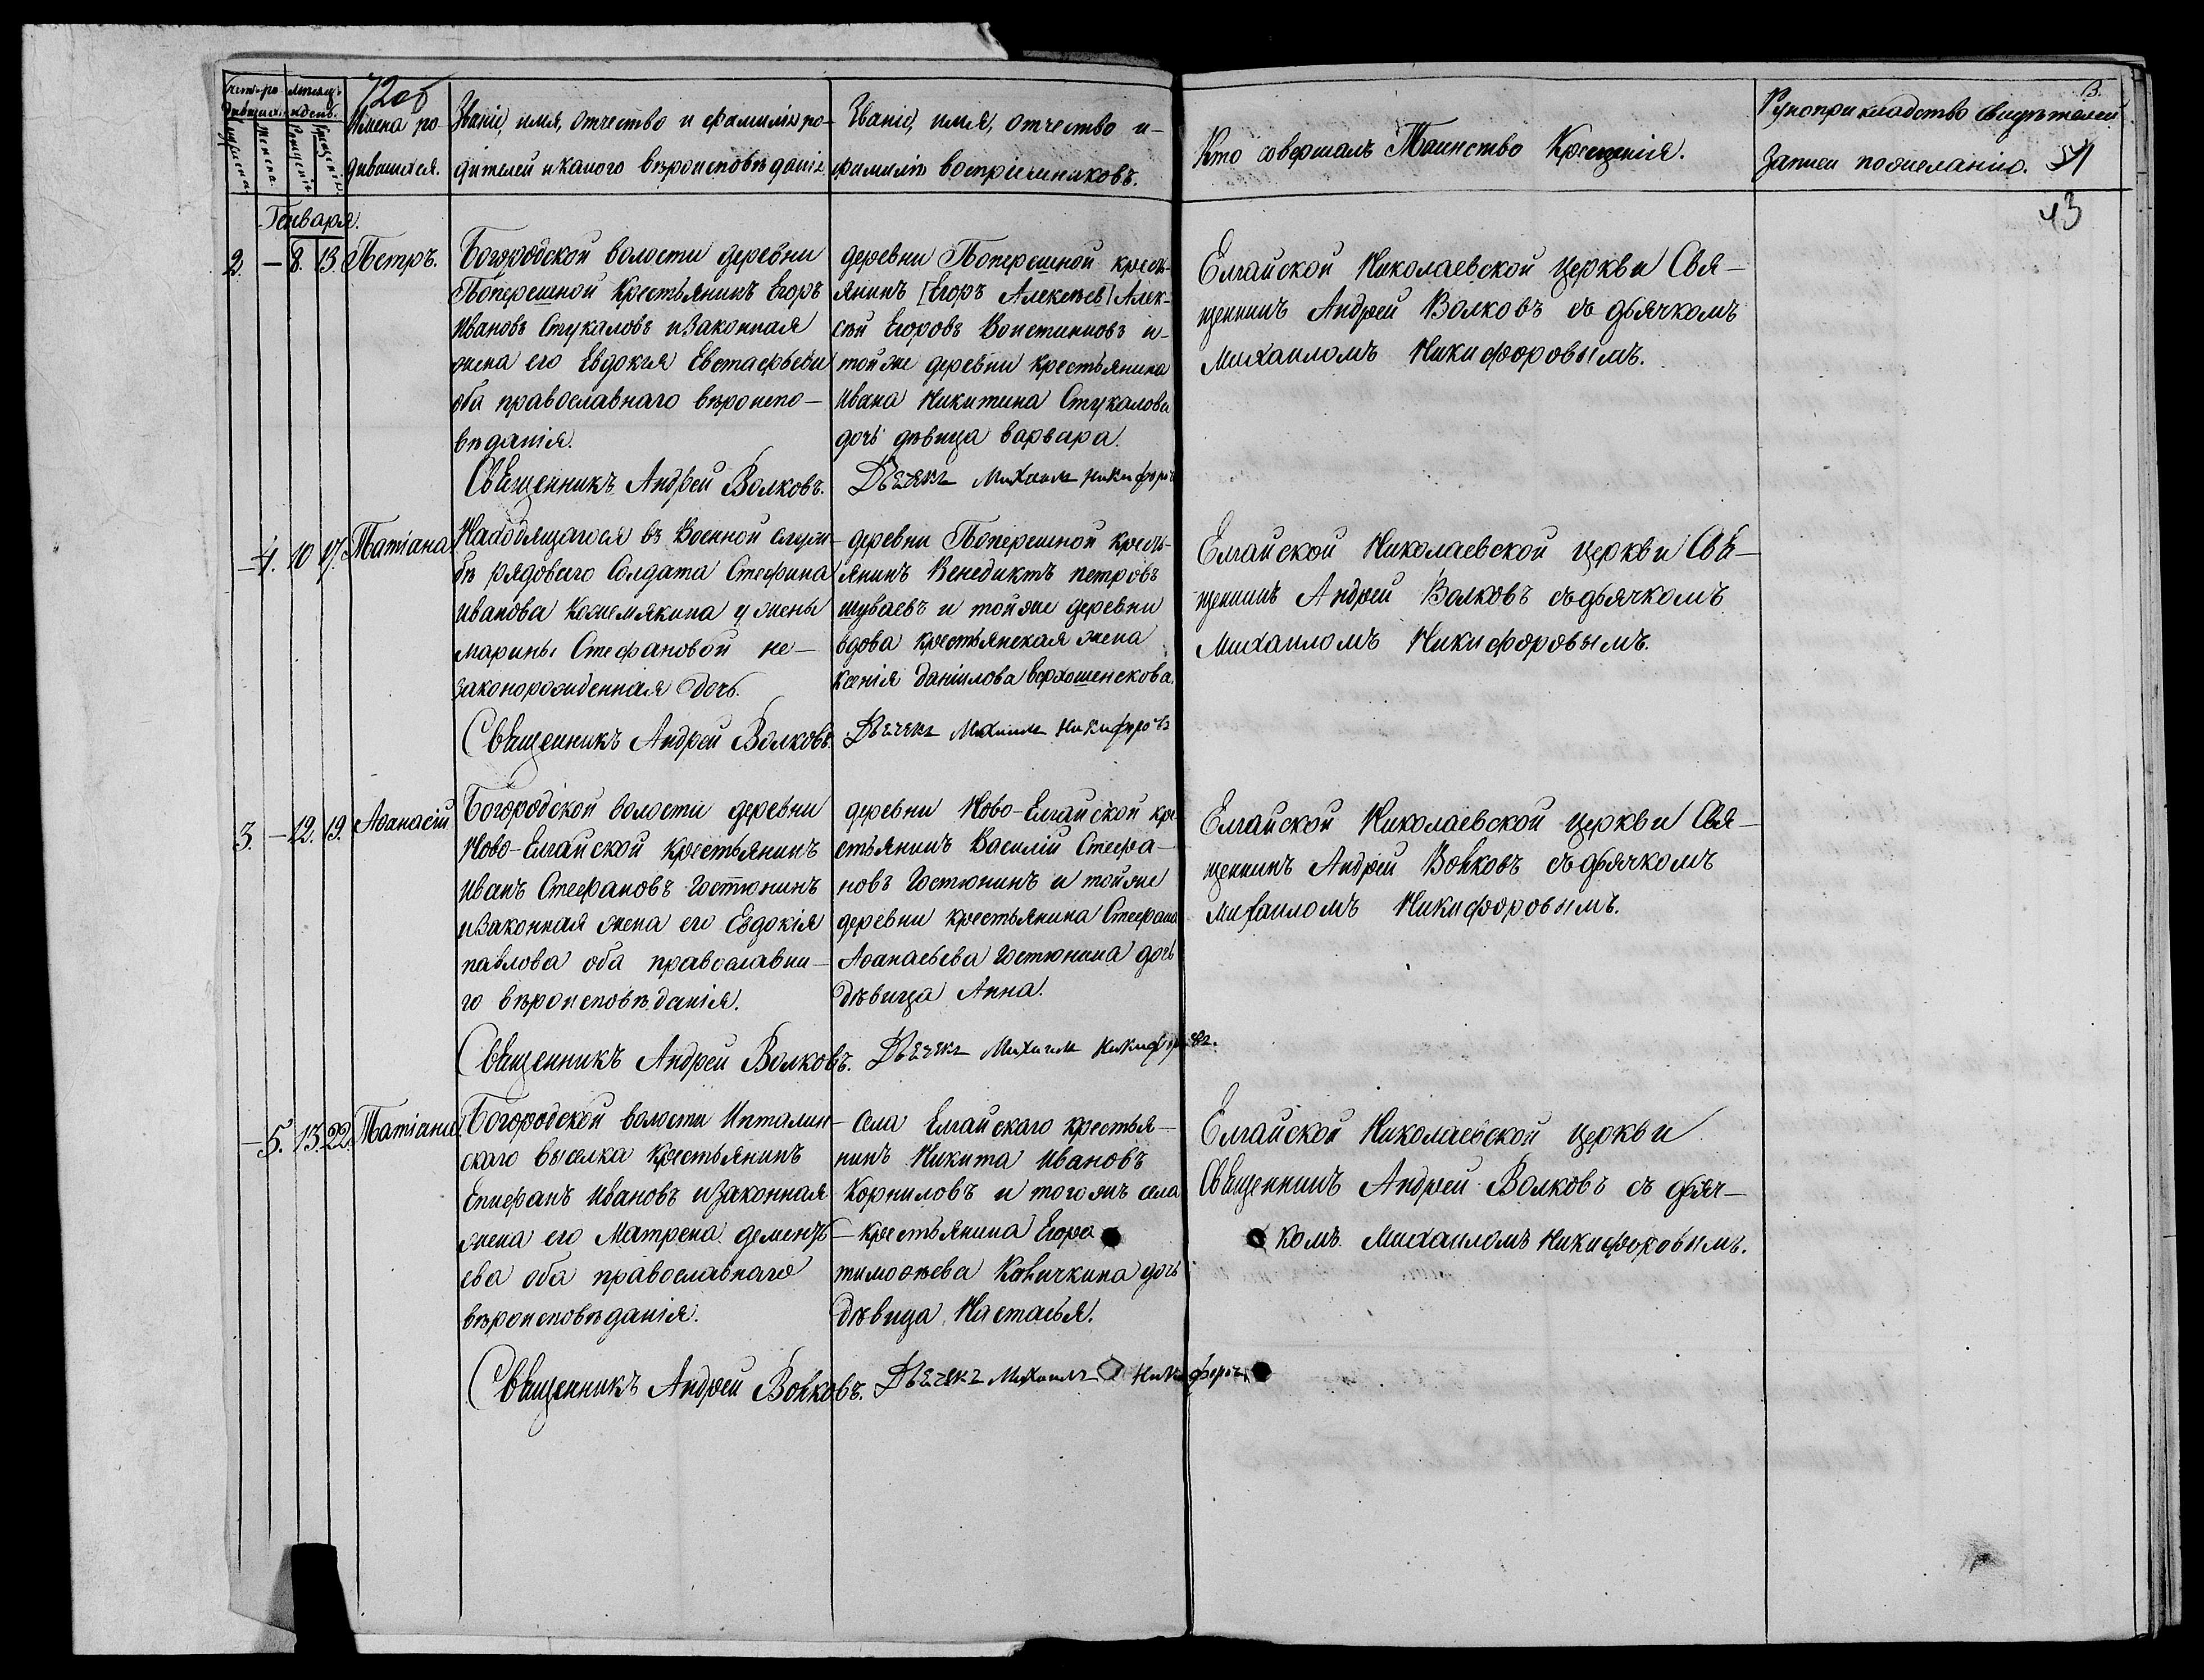 720б
Счетъ ро-
дившихся.
Мѣсяцъ
и день.
Мужеска.
Женска.
Рожденія.
Крещенія.
Имена ро-
дившихся.
Званіе, имя, отчество и фамилія ро-
дителей и какого вѣроисповѣданія.
Званіе, имя, отчество и-
фамилія воспріемниковъ.
Кто совершалъ Таинство Крещенія.
Рукоприкладство свидѣтелей
записи по желанію.
43
Генваря.
2. — 8. 13. Петръ.
Богородской волости деревни
Поперешной Крестьянинъ Егоръ
Ивановъ Стукаловъ и законная
жена его Евдокія Евстафьева
оба православнаго вѣроиспо-
вѣданія.
Священникъ Андрей Волковъ.
деревни Поперешной кресть-
янинъ [Егоръ Алексѣев] Алек-
сѣй Егоровъ и-
той же деревни крестьянина
Ивана Никитина Стукалова
дочь дѣвица варвара.
Дьячекъ Михаилъ Никифоровъ
Елгайской Николаевской церкви Свя-
щенникъ Андрей Волковъ съ дьячкомъ
Михаиломъ Никифоровымъ.
— 4. 10 17. Татіана.
Находящагося въ Военной служ-
бѣ рядоваго Солдата Стефана
Иванова Кожемякина у жены
марины Стефановой не-
законорожденная дочь.
Священникъ Андрей Волковъ.
деревни Поперешной кресть-
янинъ Венедиктъ петровъ
шуваевъ и той же деревни
вдова крестьянская жена
Ксенія даніилова
Дьячекъ Михаилъ Никифоровъ
Елгайской Николаевской церкви Свя-
щенникъ Андрей Волковъ съ дьячкомъ
Михаиломъ Никифоровымъ.
3. — 12. 19. Аѳанасій
Богородской волости деревни
Ново-Елгайской крестьянинъ
Иванъ Стефановъ Гостюнинъ
и законная жена его Евдокія
павлова оба православна-
го вѣроисповѣданія.
Священникъ Андрей Волковъ.
деревни Ново-Елгайской кре-
стьянинъ Василій Стефа-
новъ Гостюнинъ и той же
деревни крестьянина Стефана
Аѳанасьева Гостюнина дочь
дѣвица Анна.
Дьячекъ Михаилъ Никифоровъ.
Елгайской Николаевской церкви Свя-
щенникъ Андрей Волковъ съ дьячкомъ
Михаиломъ Никифоровымъ.
— 5. 13. 22. Татіана.
Богородской волости
скаго выселка Крестьянинъ
Епифанъ Ивановъ и законная
жена его Матрена демент-
ева оба православнаго
вѣроисповѣданія.
Священникъ Андрей Волковъ.
села Елгайскаго крестья-
нинъ Никита Ивановъ
Корниловъ и того жъ села
крестьянина Егора
тимоѳеева дочь
дѣвица Настасья.
Дьячекъ Михаилъ Никифоровъ
Елгайской Николаевской церкви
Священникъ Андрей Волковъ съ дьяч-
комъ Михаиломъ Никифоровымъ.